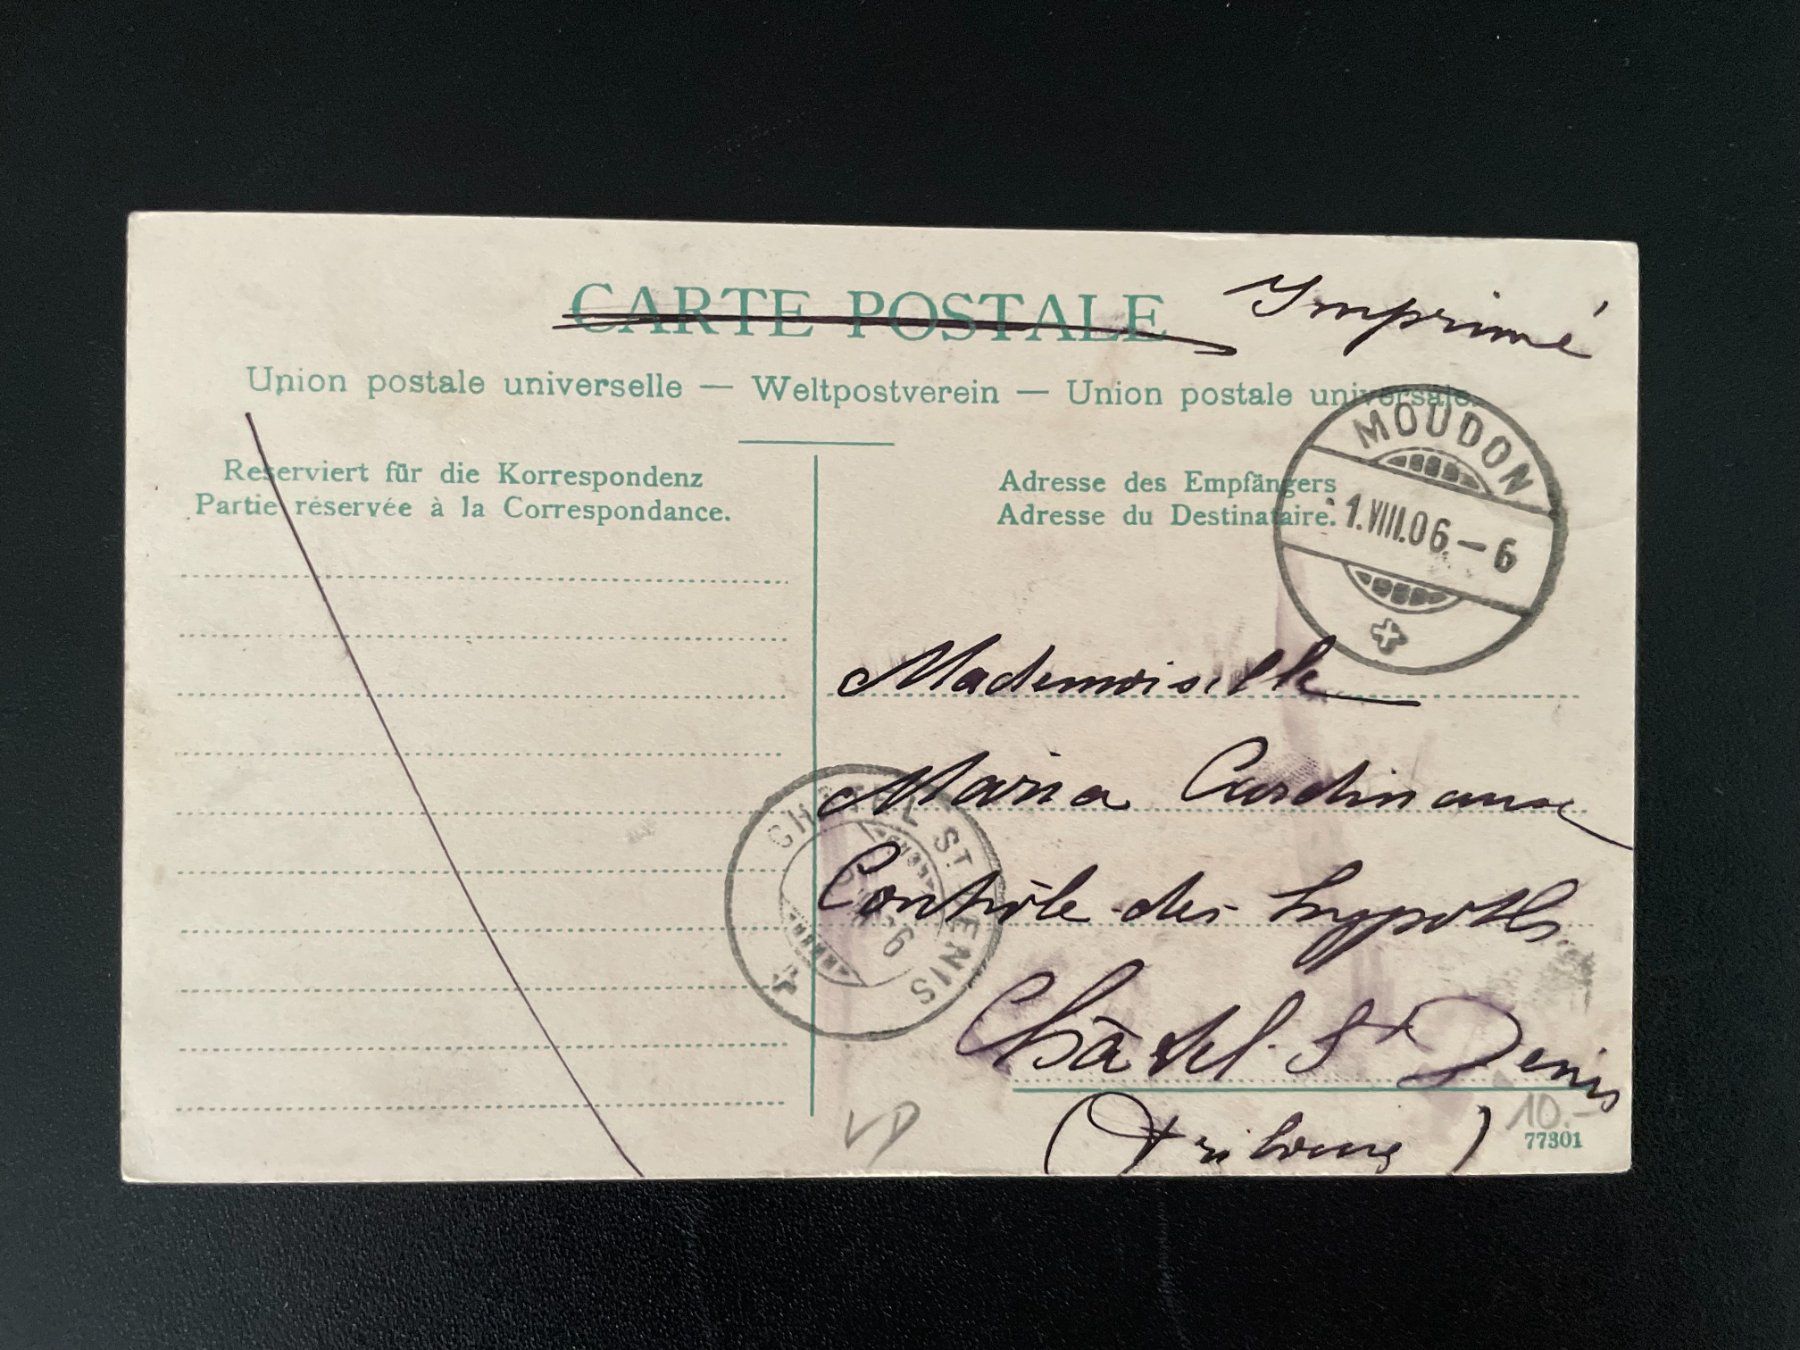 CARTE POSTALE
Imprimé
Union postale universelle — Weltpostverein — Union postale universale.
Reserviert für die Korrespondenz
Partie réservée à la Correspondance.
Adresse des Empfängers
Adresse du Destinataire.
MOUDON
1.VIII.06.–6
Mademoiselle
Maria Cardinaux
Contrôle des hypoths
Châtel St Denis
(Fribourg)
CHÂTEL ST DENIS
VD
10.-
77301